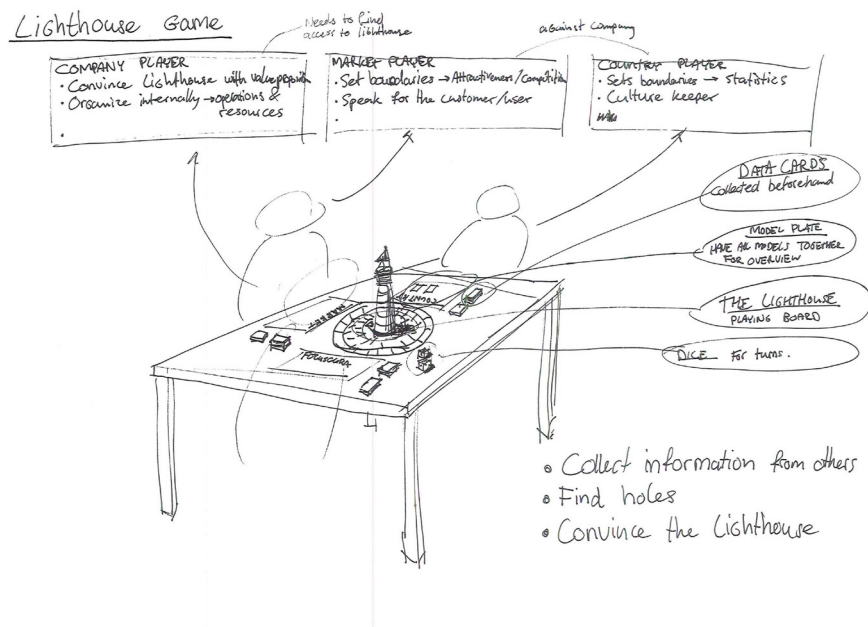 Lighthouse Game
Needs to find
access to lighthouse
against company
COMPANY PLAYER
• Convince Lighthouse with value proposition
• Organize internally → operations &
resources
MARKET PLAYER
• Set boundaries → Attractiveness/Competition
• Speak for the customer/user
COUNTRY PLAYER
• Sets boundaries → statistics
• Culture keeper
DATA CARDS
Collected beforehand
MODEL PLATE
HAVE ALL MODELS TOGETHER
FOR OVERVIEW
THE LIGHTHOUSE
PLAYING BOARD
DICE for turns.
COUNTRY
MARKET
• Collect information from others
• Find holes
• Convince the Lighthouse